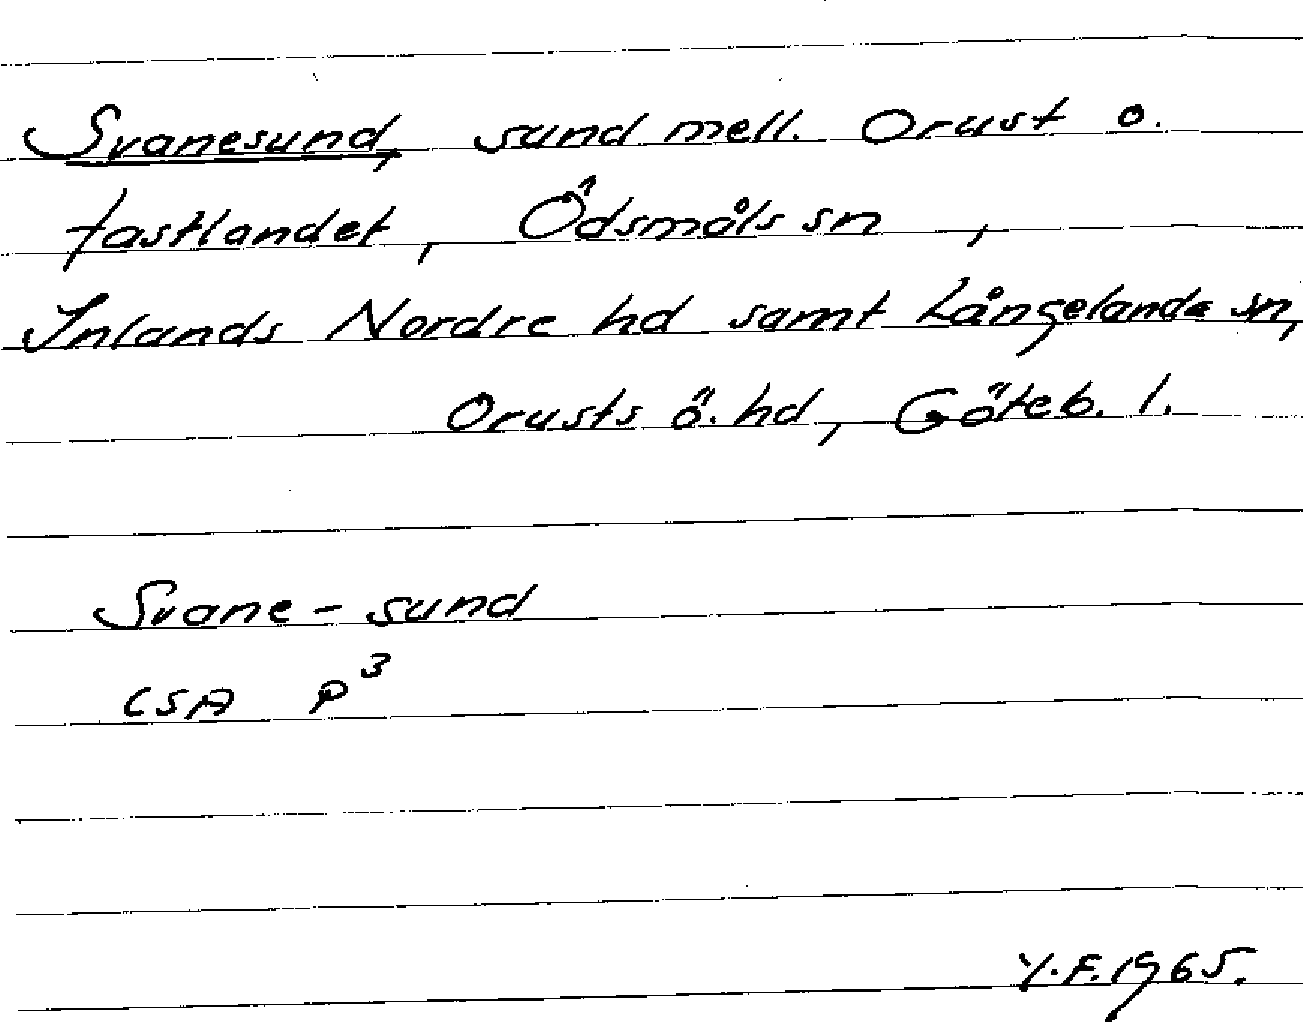 Svanesund, sund mell. Orust o.
fastlandet, Ödsmåls sn,
Inlands Nordre hd samt Långelanda sn,
Orusts ö. hd, Göteb. l.
Svane-sund
CSA P³
Y.F. 1965.